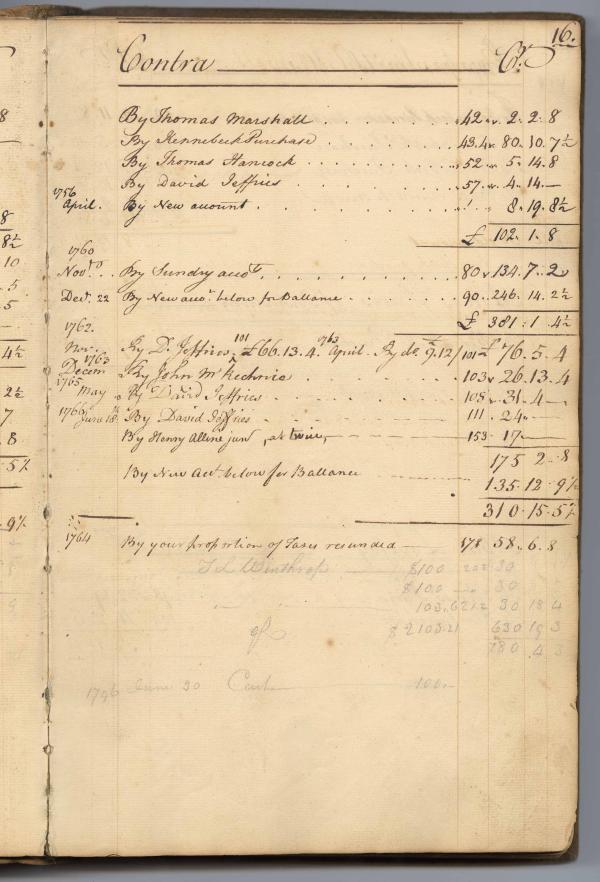 16.
Contra Cr.
By Thomas Marshall 42 2. 2. 8
By Kennebeck Purchase 43.4 80. 10. 7½
By Thomas Hancock 52 5. 14. 8
By David Jeffries 57 4. 14.—
1756
April. By New account 8. 19. 8½
£ 102. 1. 8
1760
Novr. By Sundry accots. 80 134. 7. 2
Decr. 22 By New acco. below for Ballance 90 246. 14. 2½
£ 381. 1. 4½
1762.
Nov. By D. Jeffries, 101 £66.13.4. 1763 April. By do. 9.12/ 101 £ 76. 5. 4
1763
Decem By John McKechnie 103 26. 13. 4
1765
May By David Jeffries 108 31. 4—
1766
June 18 By David Jeffries 111 24—
By Henry Alline junr, at twice, 153 17—
175 2. 8
By New Act. below for Ballance 135. 12. 9½
310. 15. 5½
1764 By your proportion of Taxes resunded 178 58. 6. 8
T L Winthrop $100 202 30
$100 30
103.62 30 18 4
$2103.21 630 19 3
780. 4 3
1796 June 30 100.